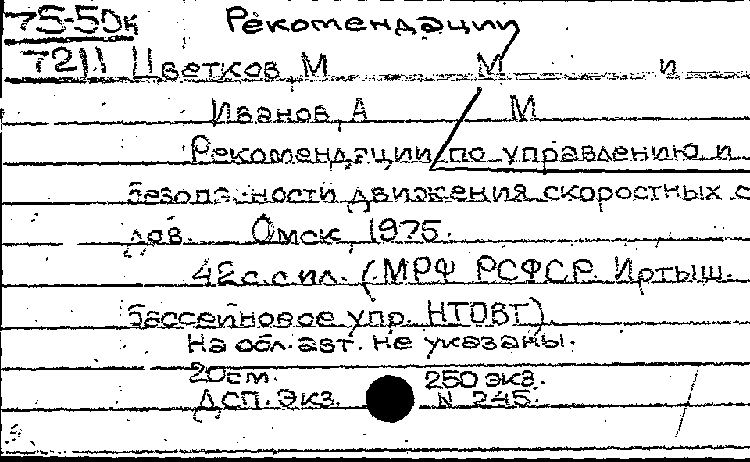 75-50к Рекомендации
7211 Цветков, М М и
Иванов, А М
Рекомендации по управлению и
безопасности движения скоростных с
дов. Омск, 1975.
42 с. с ил. (МРФ РСФСР. Иртыш.
бассейновое упр. НТОВТ).
На обл. авт. не указаны.
20 см. 250 экз.
ДСП. Экз. N 245.